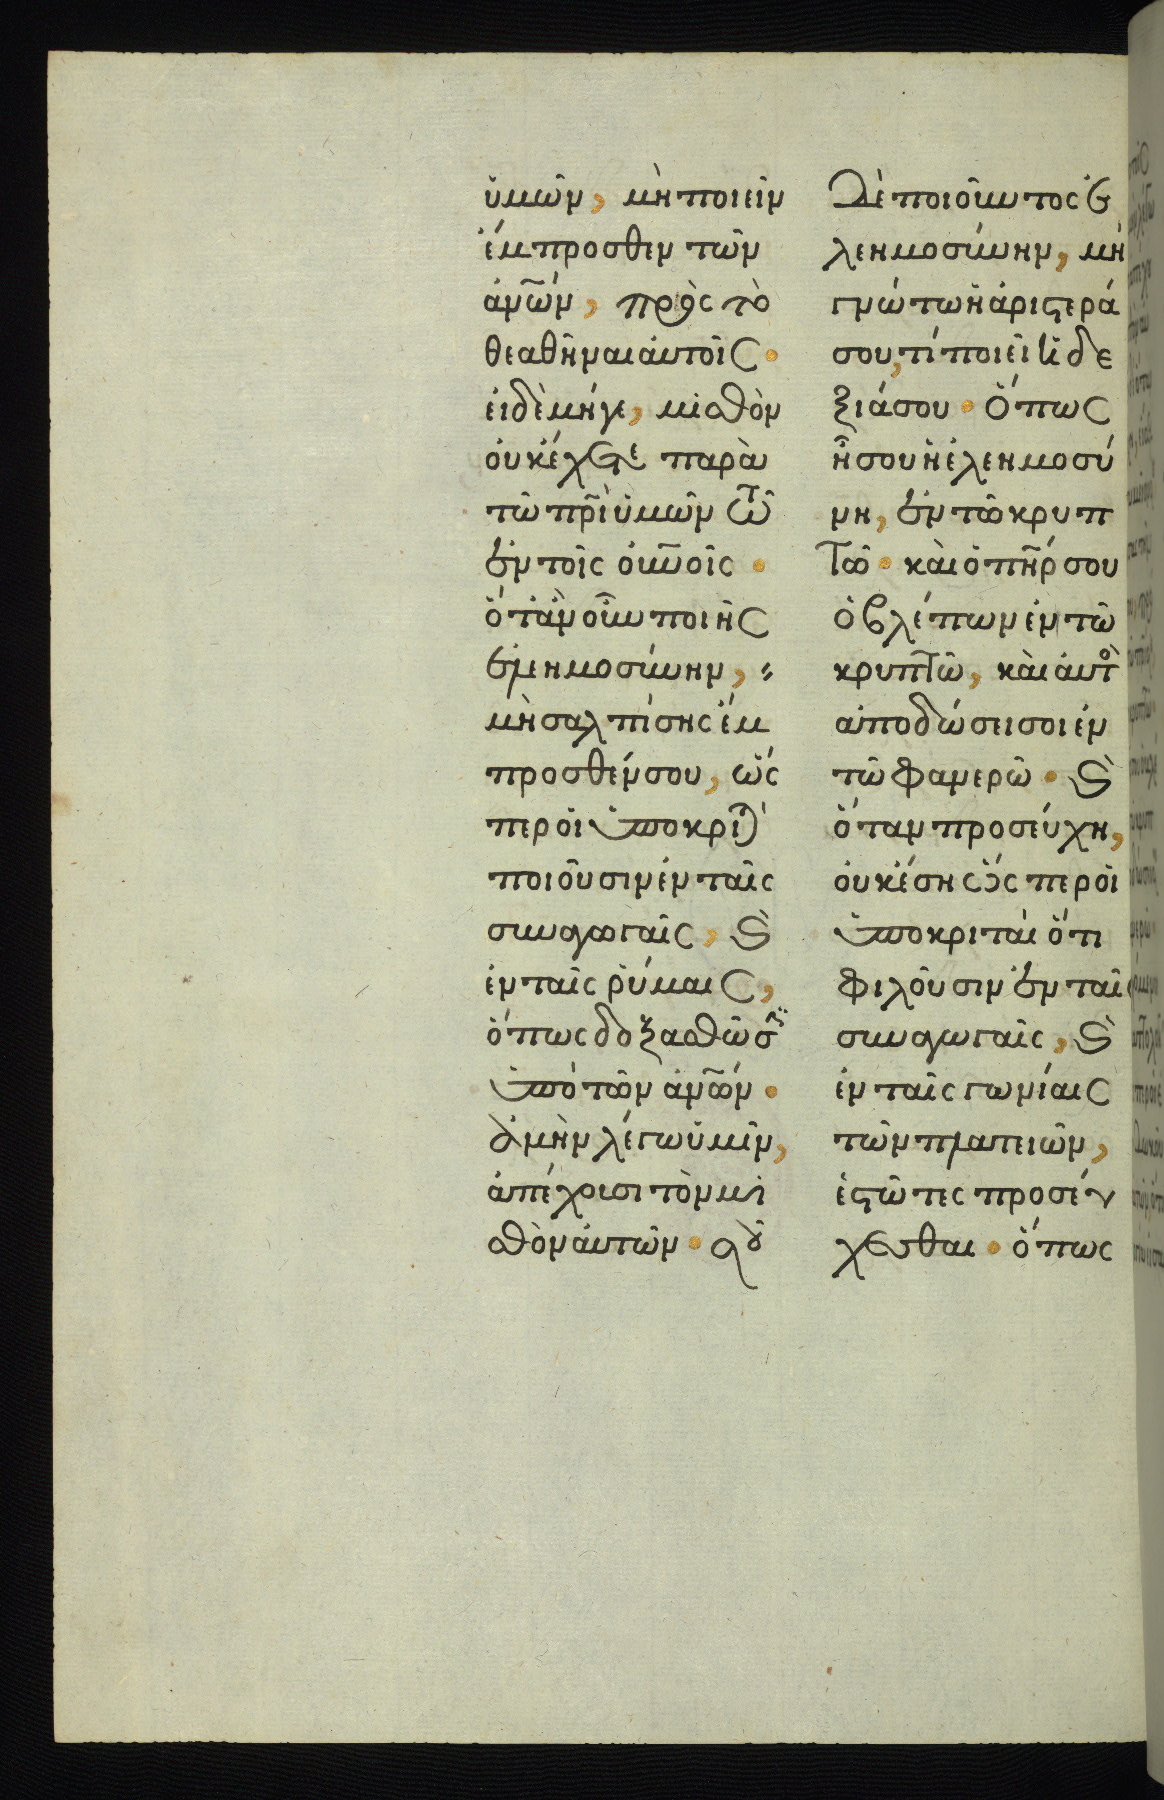 ὑμῶν, μὴ ποιεῖν
ἔμπροσθεν τῶν
ἀν̅ω̅ν, πρὸς τὸ
θεαθῆναι αὐτοῖς·
εἰ δὲ μήγε, μισθὸν
οὐκ ἔχετε παρὰ
τῶ π̅ρ̅ὶ ὑμῶν τῶ
ἐν τοῖς οὐ̅ν̅οῖς·
ὅταν οὖν ποιῆς
ἐλεημοσύνην,
μὴ σαλπίσης ἔμ
προσθέν σου, ὥς
περ οἱ ὑποκριτ
ποιοῦσιν ἐν ταῖς
συναγωγαῖς, καὶ
ἐν ταῖς ῥύμαις,
ὅπως δοξασθῶσ
ὑπὸ τῶν ἀν̅ω̅ν·
ἀμὴν λέγω ὑμῖν,
ἀπέχουσι τὸν μι
σθὸν αὐτῶν· σοῦ
δὲ ποιοῦντος ἐ
λεημοσύνην, μὴ
γνώτω ἡ ἀριστερά
σου, τί ποιεῖ ἡ δε
ξιά σου· ὅπως
ἦ σου ἡ ἐλεημοσύ
νη, ἐν τῶ κρυπ
τῶ· καὶ ὁ π̅η̅ρ σου
ὁ βλέπων ἐν τῶ
κρυπτῶ, καὶ αὐτὸ
ἀποδώσει σοι ἐν
τῶ φανερῶ· καὶ
ὅταν προσεύχη,
οὐκ ἔση ὥσπερ οἱ
ὑποκριταὶ ὅτι
φιλοῦσιν ἐν ταῖς
συναγωγαῖς, καὶ
ἐν ταῖς γωνίαις
τῶν πλατειῶν,
ἑστῶτες προσεύ
χεσθαι· ὅπως